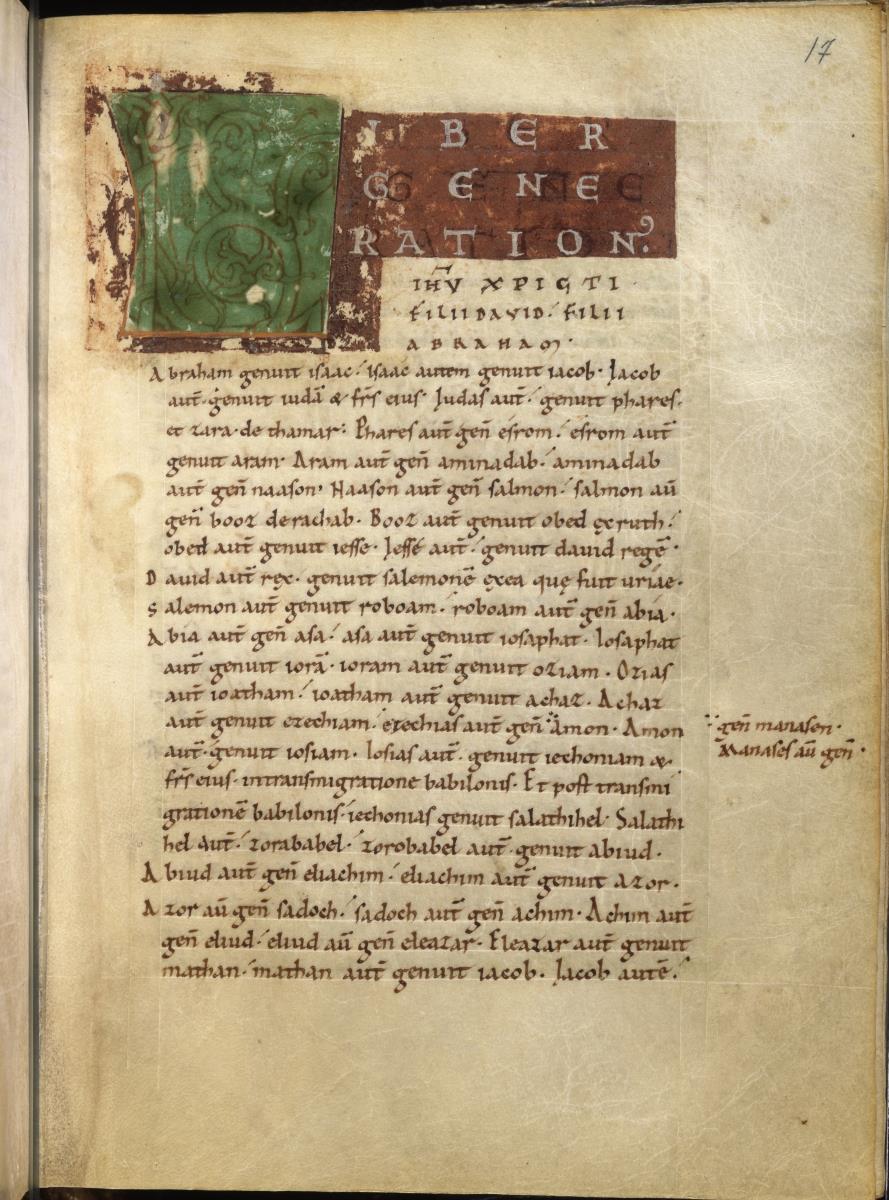 17
IBER
GENEE
RATION.
IHV XPICTI
FILII DAVID. FILII
ABRAHAM.
Abraham genuit isaac. isaac autem genuit iacob. Iacob
aut̄. genuit iudā & fr̄s eius. Iudas aut̄. genuit phares.
et zara. de thamar. Phares aut̄ geñ esrom. esrom aut̄
genuit aram. Aram aut̄ geñ aminadab. aminadab
aut̄ geñ naason. Naason aut̄ geñ salmon. salmon aū
geñ booz de rachab. Booz aut̄ genuit obed ex ruth.
obed aut̄ genuit iesse. Iesse aut̄. genuit david regē.
David aut̄ rex. genuit salemonē ex ea quę fuit uriae.
Salemon aut̄ genuit roboam. roboam aut̄ geñ abia.
Abia aut̄ geñ asa. asa aut̄ genuit iosaphat. Iosaphat
aut̄ genuit iorā. ioram aut̄ genuit oziam. Ozias
aut̄ ioatham. ioatham aut̄ genuit achaz. Achaz
aut̄ genuit ezechiam. ezechias aut̄ geñ amon. Amon
geñ manasen.
Manases aū geñ.
aut̄. genuit iosiam. Iosias aut̄. genuit iechoniam &
fr̄s eius. in transmigratione babilonis. Et post transmi
grationē babilonis. iechonias genuit salathihel. Salathi
hel aut̄. zorababel. zorobabel aut̄. genuit abiud.
Abiud aut̄ geñ eliachim. eliachim aut̄ genuit azor.
Azor aū geñ sadoch. sadoch aut̄ geñ achim. Achim aut̄
geñ eliud. eliud aū geñ eleazar. Eleazar aut̄ genuit
mathan. mathan aut̄ genuit iacob. Iacob autē.